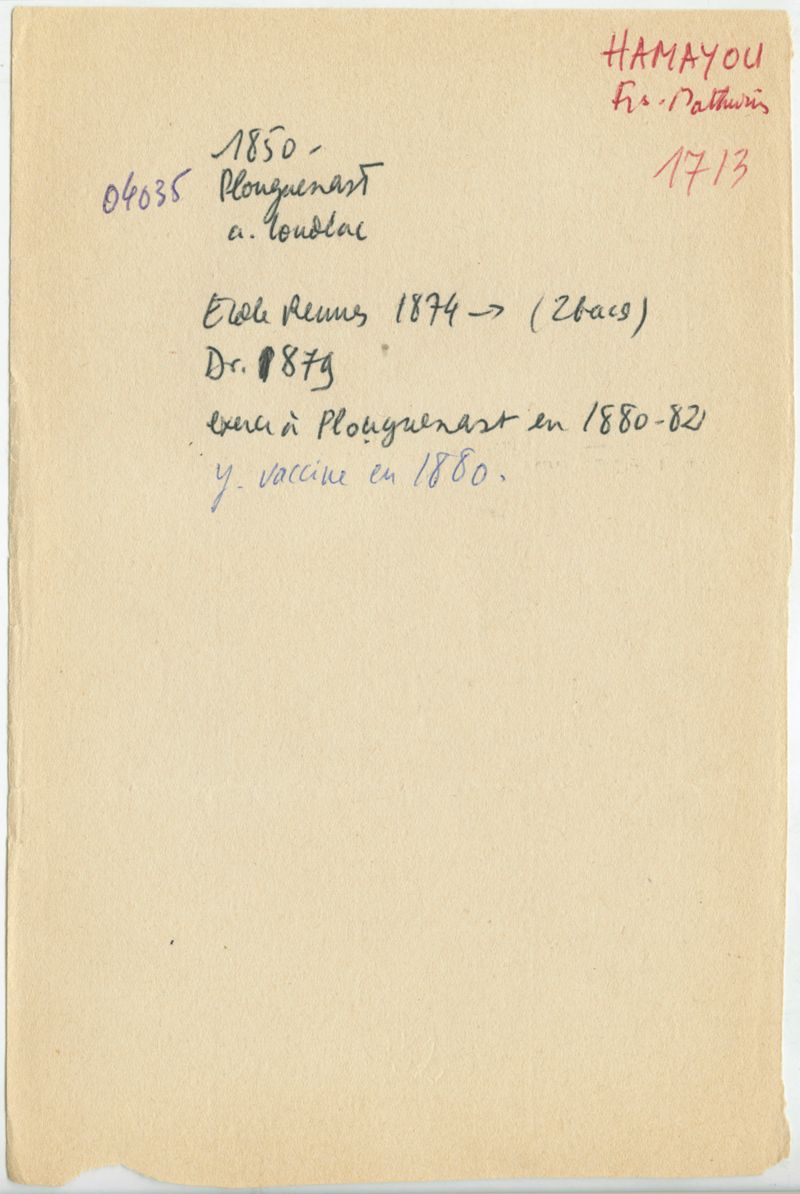 HAMAYOU
Frs. Mathurin
1713
1850 -
04035 Plouguenast
a. Loudéac
Ecole Rennes 1874 → (2 bacs)
Dr. 1879
exerce à Plouguenast en 1880-82
y. vaccine en 1880.